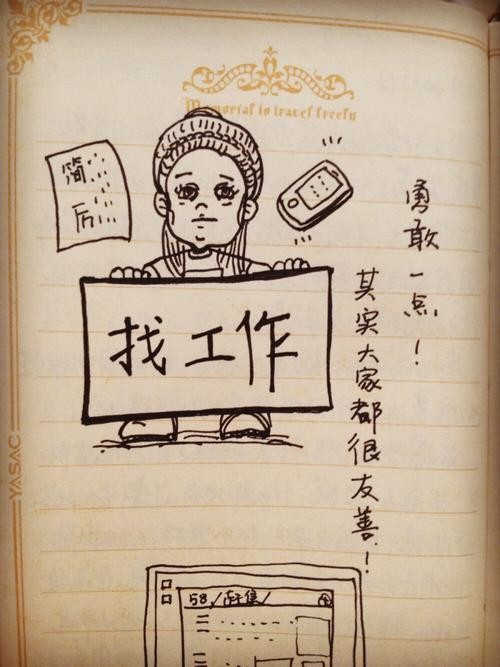 Memorial to travel freely
简
历
找工作
勇敢一点!
其实大家都很友善!
58./赶集/
YASAC